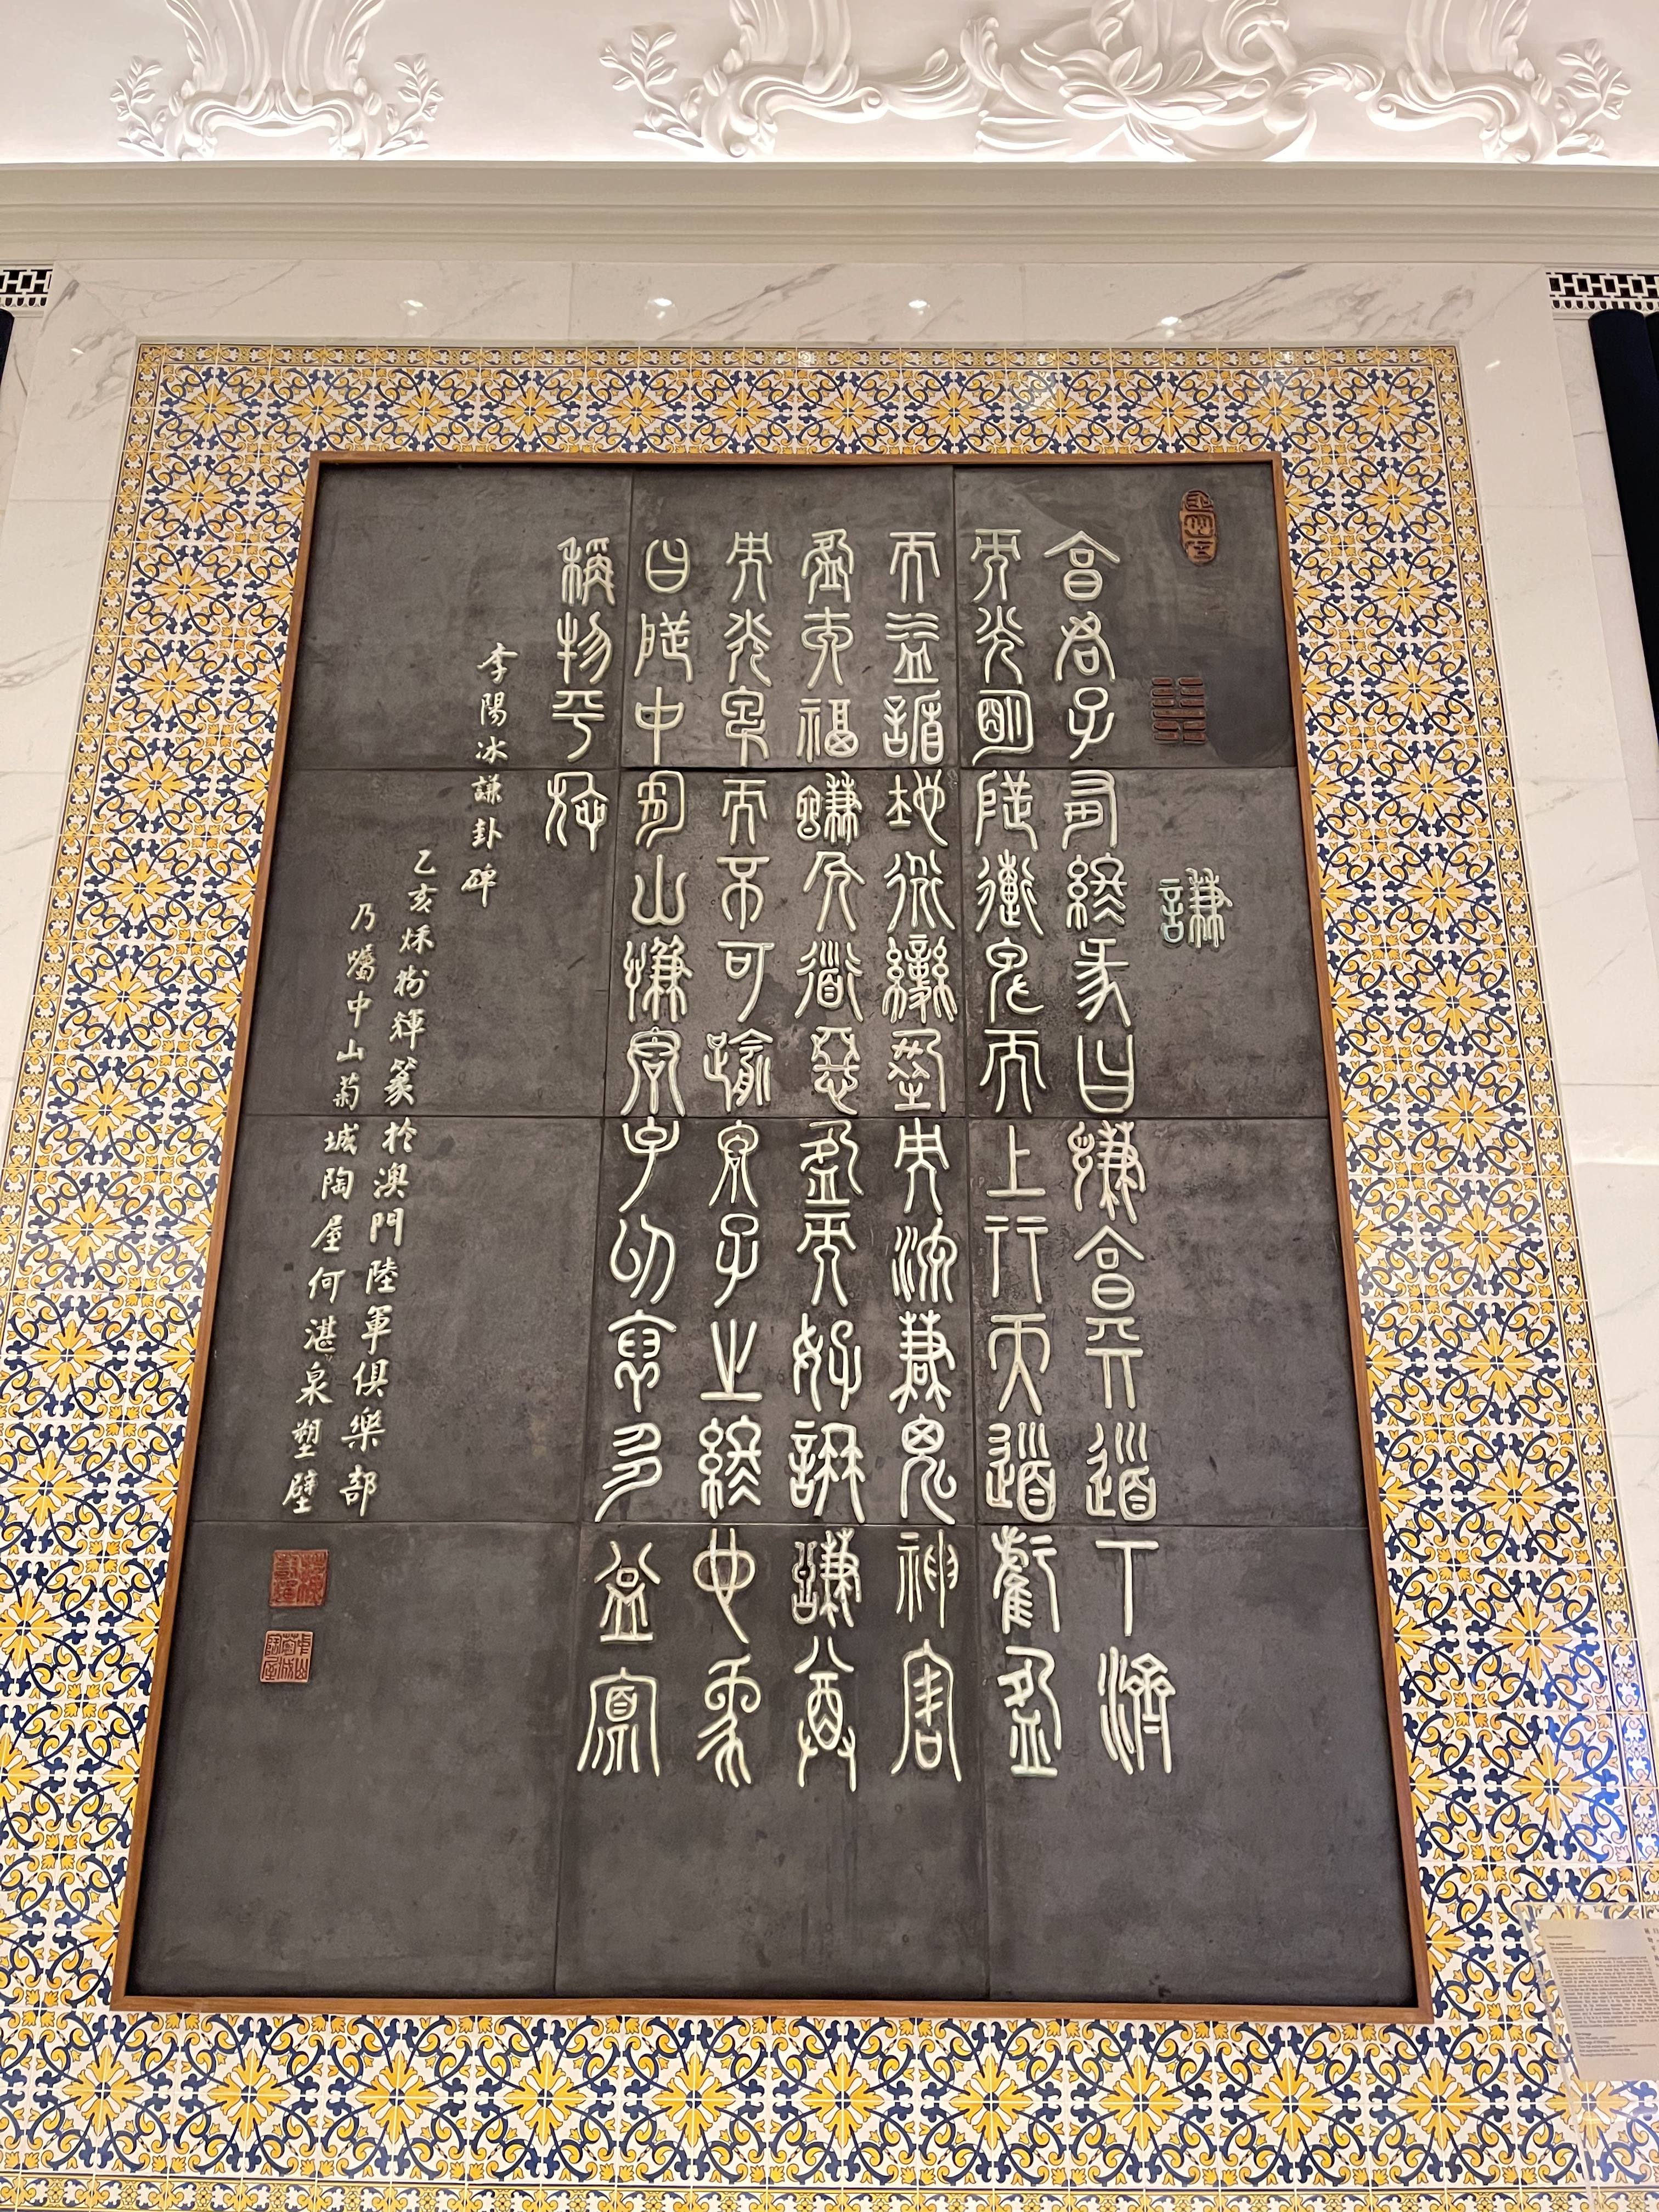 謙
亨君子有終彖曰謙亨天道下濟
而光明地道卑而上行天道虧盈
而益謙地道變盈而流謙鬼神害
盈而福謙人道惡盈而好謙謙尊
而光卑而不可踰君子之終也象
曰地中有山謙君子以裒多益寡
稱物平施
李陽冰謙卦碑
乙亥秋樹輝篆於澳門陸軍俱樂部
乃囑中山菊城陶屋何湛泉塑壁
中山菊城陶屋